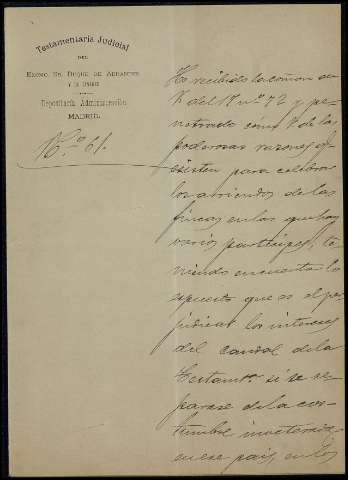 Testamentaría Judicial
DEL
EXCMO. SR. DUQUE DE ABRANTES
Y DE LINARES
Depositaría Administración
MADRID.
N.º 61.
He recibido la comon de
V. del 18 nº 72 y pe-
netrado como V. de las
poderosas razones qe
existen para celebrar
los arriendos de las
fincas en las que hay
varios participes, te-
niendo en cuenta lo
expuesto que es el per-
judicar los intereses
del caudal de la
Testamtª si se se-
parase de la cos-
tumbre inveterada
en ese pais, en los